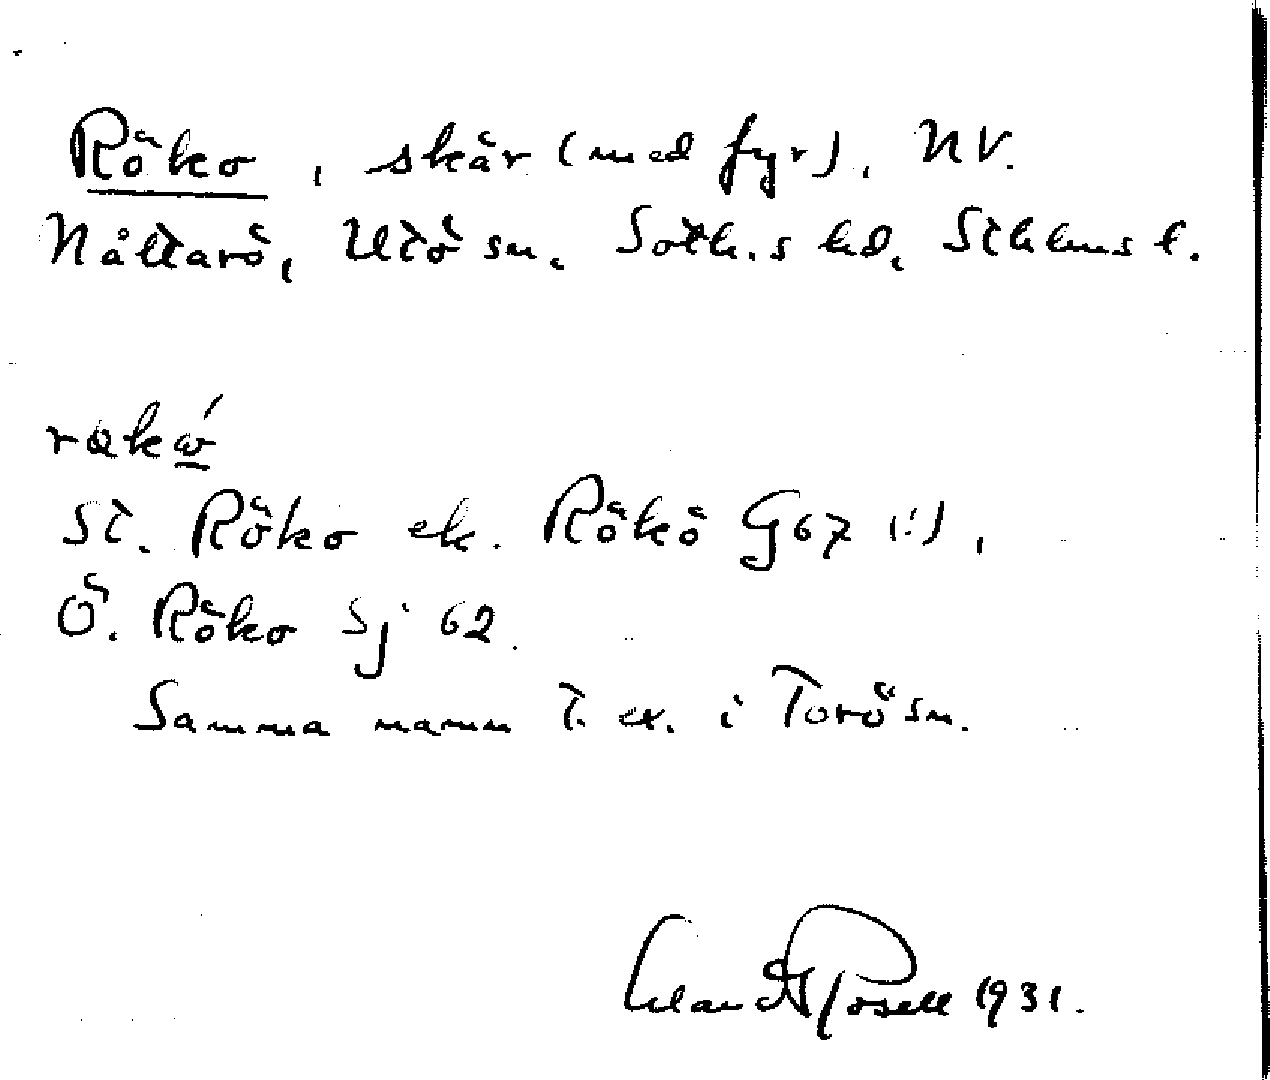 Röko, skär (med fyr), NV.
Nåttarö, Utö sn. Soth.s hd, Sthlms l.
St. Röko ek. Rökö G67 (!),
Ö. Röko Sj 62.
Samma namn t. ex. i Torö sn.
Rosell 1931.